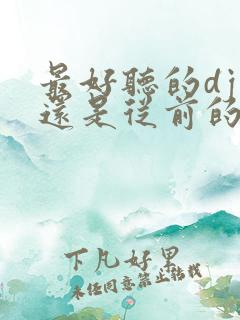 最好聽的dj
還是從前的
下凡好果
未经同意禁止转载